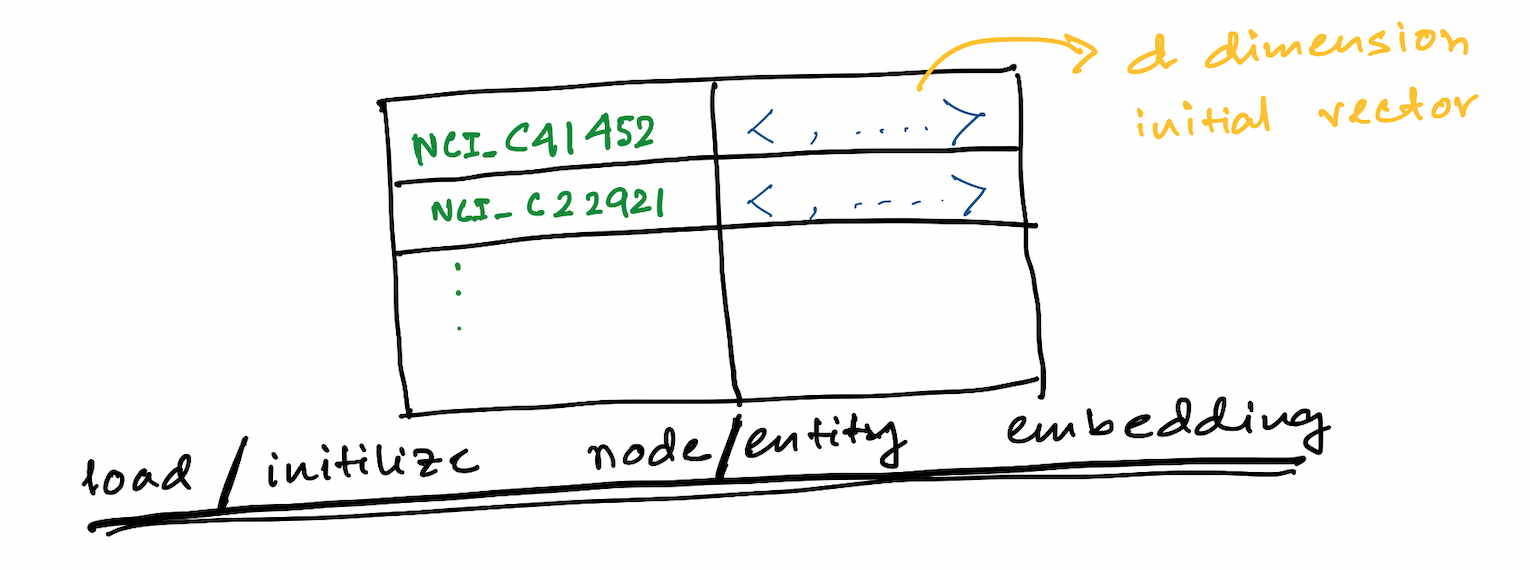 d dimension
initial vector
NCI_C41452 < , ....>
NCI_C22921 < , .....>
load / initilize node/entity embedding